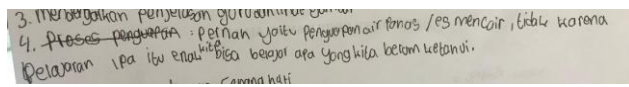 3. mendengarkan penjelasan guru
4. Proses penguapan : Pernah yaitu Penguapan air Panas / es mencair, tidak karena
Pelajaran IPa itu enak kita bisa belajar apa yang kita belum ketahui.
hati